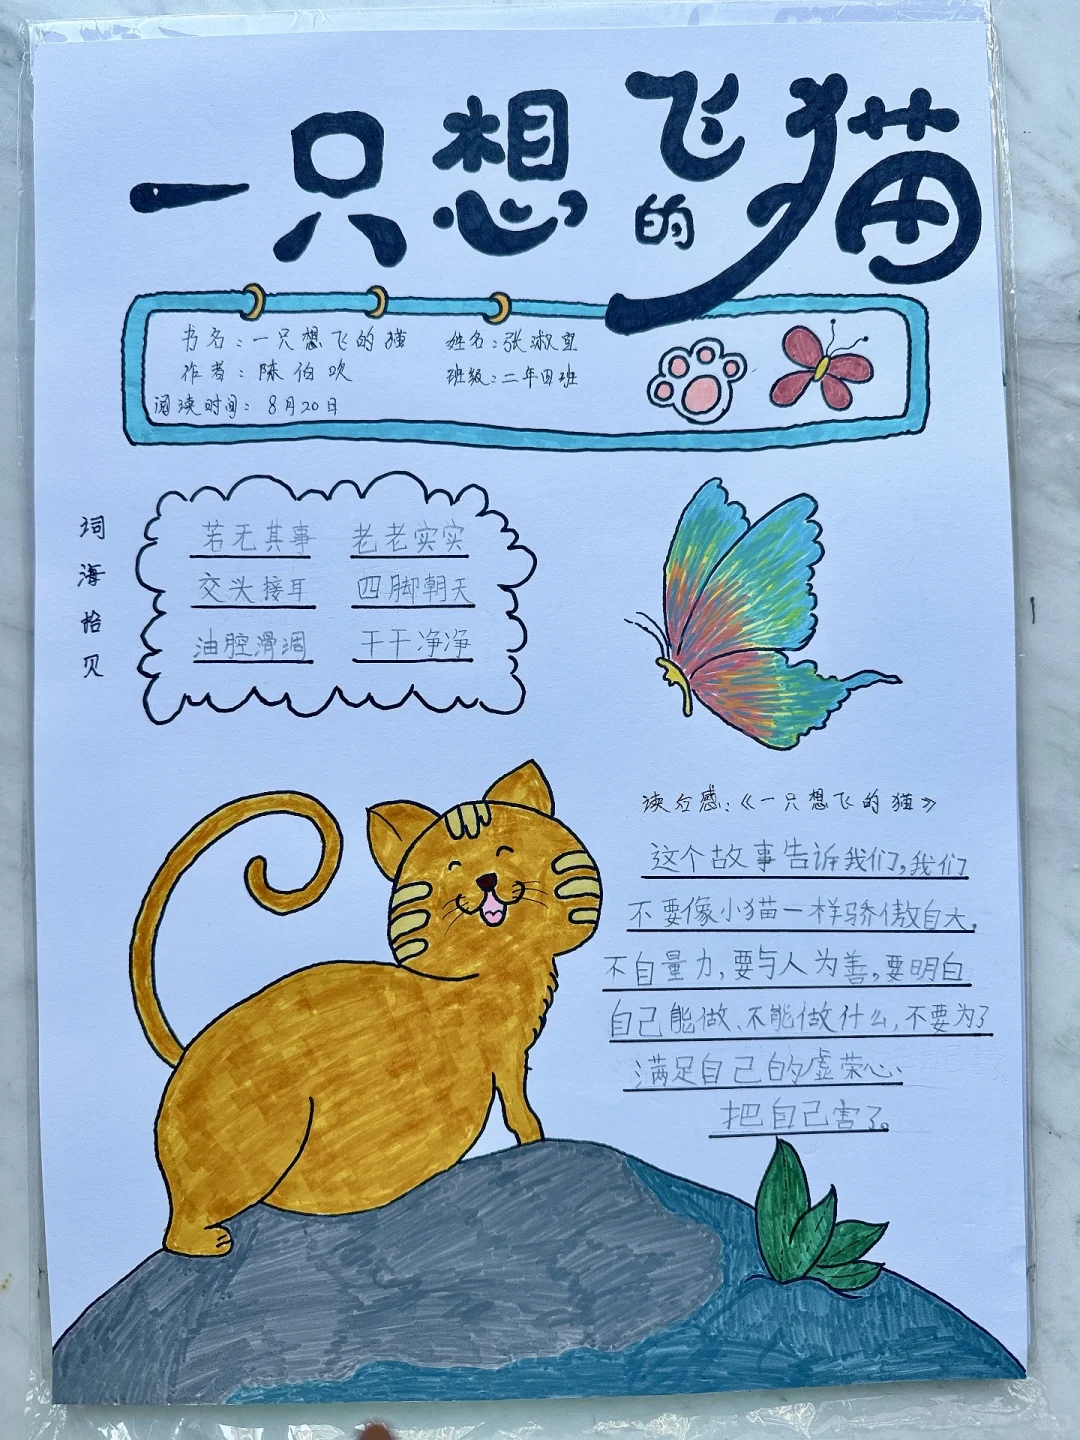 一只想飞的猫
书名：一只想飞的猫
姓名：张淑
作者：陈伯吹
班级：二年四班
阅读时间：8月20日
词海恰贝
若无其事 老老实实
交头接耳 四脚朝天
油腔滑调 干干净净
读后感：《一只想飞的猫》
这个故事告诉我们，我们
不要像小猫一样骄傲自大，
不自量力，要与人为善，要明白
自己能做、不能做什么，不要为了
满足自己的虚荣心、
把自己害了。